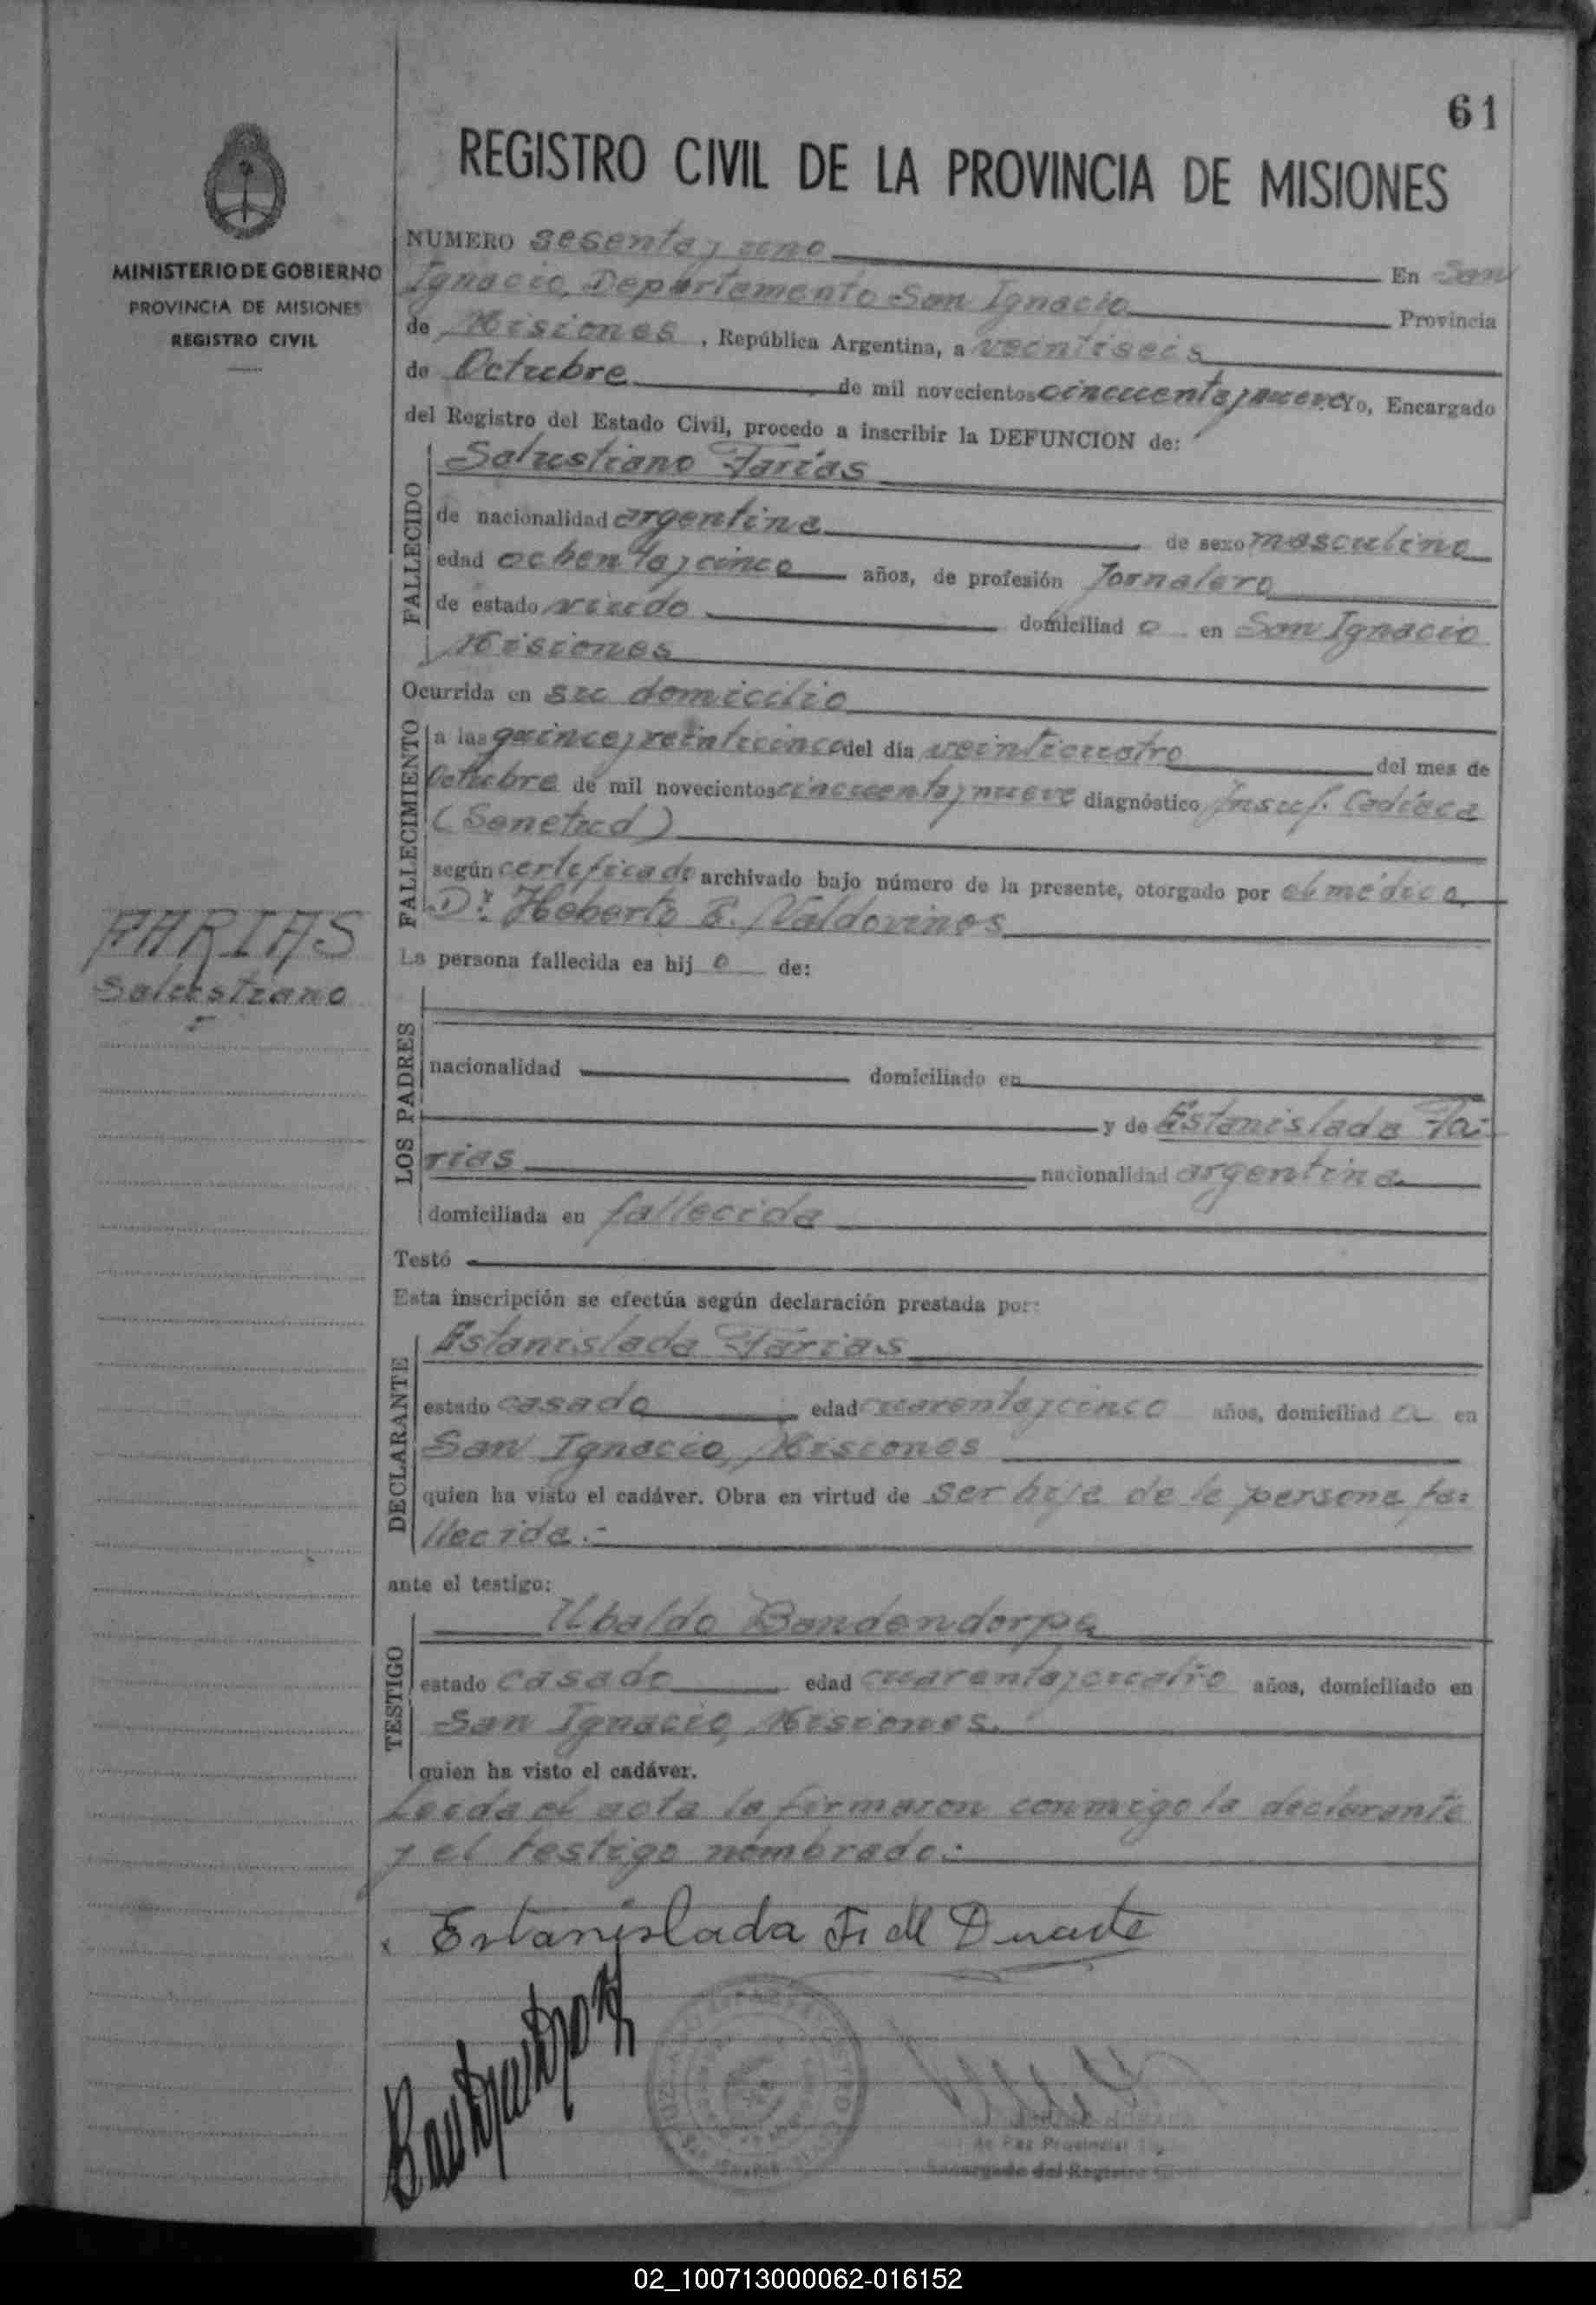 61
REGISTRO CIVIL DE LA PROVINCIA DE MISIONES
MINISTERIO DE GOBIERNO
PROVINCIA DE MISIONES
REGISTRO CIVIL
NUMERO sesenta y uno En San
Ignacio, Departamento San Ignacio Provincia
de Misiones, República Argentina, a veintiseis
de Octubre de mil novecientos cincuenta y nueve Yo, Encargado
del Registro del Estado Civil, procedo a inscribir la DEFUNCION de:
FALLECIDO
Salustiano Farías
de nacionalidad argentina de sexo masculino
edad ochenta y cinco años, de profesión Jornalero
de estado viudo domiciliad o en San Ignacio
Misiones
Ocurrida en su domicilio
FALLECIMIENTO
a las quince y veinticinco del día veinticuatro del mes de
Octubre de mil novecientos cincuenta y nueve diagnóstico Insuf. Cadíaca
(Senetud)
según certificado archivado bajo número de la presente, otorgado por el médico,
Dr. Heberto E. Valdovinos
FARIAS
Salustiano
La persona fallecida es hij o de:
LOS PADRES
nacionalidad domiciliado en
y de Estanislada Fa-
rias nacionalidad argentina
domiciliada en fallecida
Testó
Esta inscripción se efectúa según declaración prestada por:
DECLARANTE
Estanislada Farias
estado casado edad cuarenta y cinco años, domiciliad a en
San Ignacio, Misiones
quien ha visto el cadáver. Obra en virtud de ser hija de la persona fa=
llecida.-
ante el testigo:
TESTIGO
Ubaldo Bandendorpe
estado casado edad cuarenta y cuatro años, domiciliado en
San Ignacio, Misiones.
quien ha visto el cadáver.
Leeda el acta la firmaron conmigo la declarante
y el testigo nombrado.-
Estanislada F. de Duarte
de Paz Provincial
Encargado del Registro
02_100713000062-016152